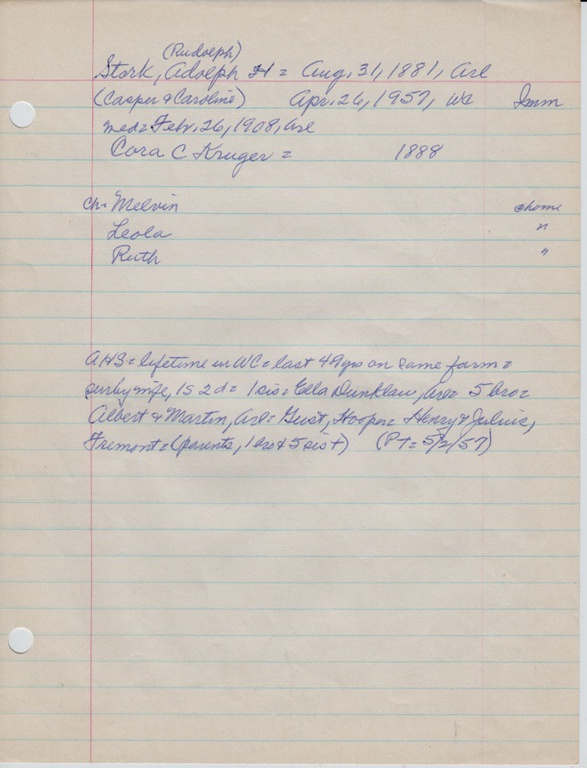 (Rudolph)
Stork, Adolph H = Aug. 31, 1881, Arl
(Casper & Caroline) Apr. 26, 1957, WC Imm
med = Febr. 26, 1908, Arl
Cora C Kruger = 1888
Ch - Melvin @home
Leola "
Ruth "
AHS = lifetime in WC = last 49 yrs on same farm =
sur by wife, 1s 2d = 1 sis = Ella Dunklau, Arl = 5 bro =
Albert & Martin, Arl = Gust, Hooper = Henry & Julius,
Fremont = (parents, 1 bro & 5 sist) (PT = 5/2/57)